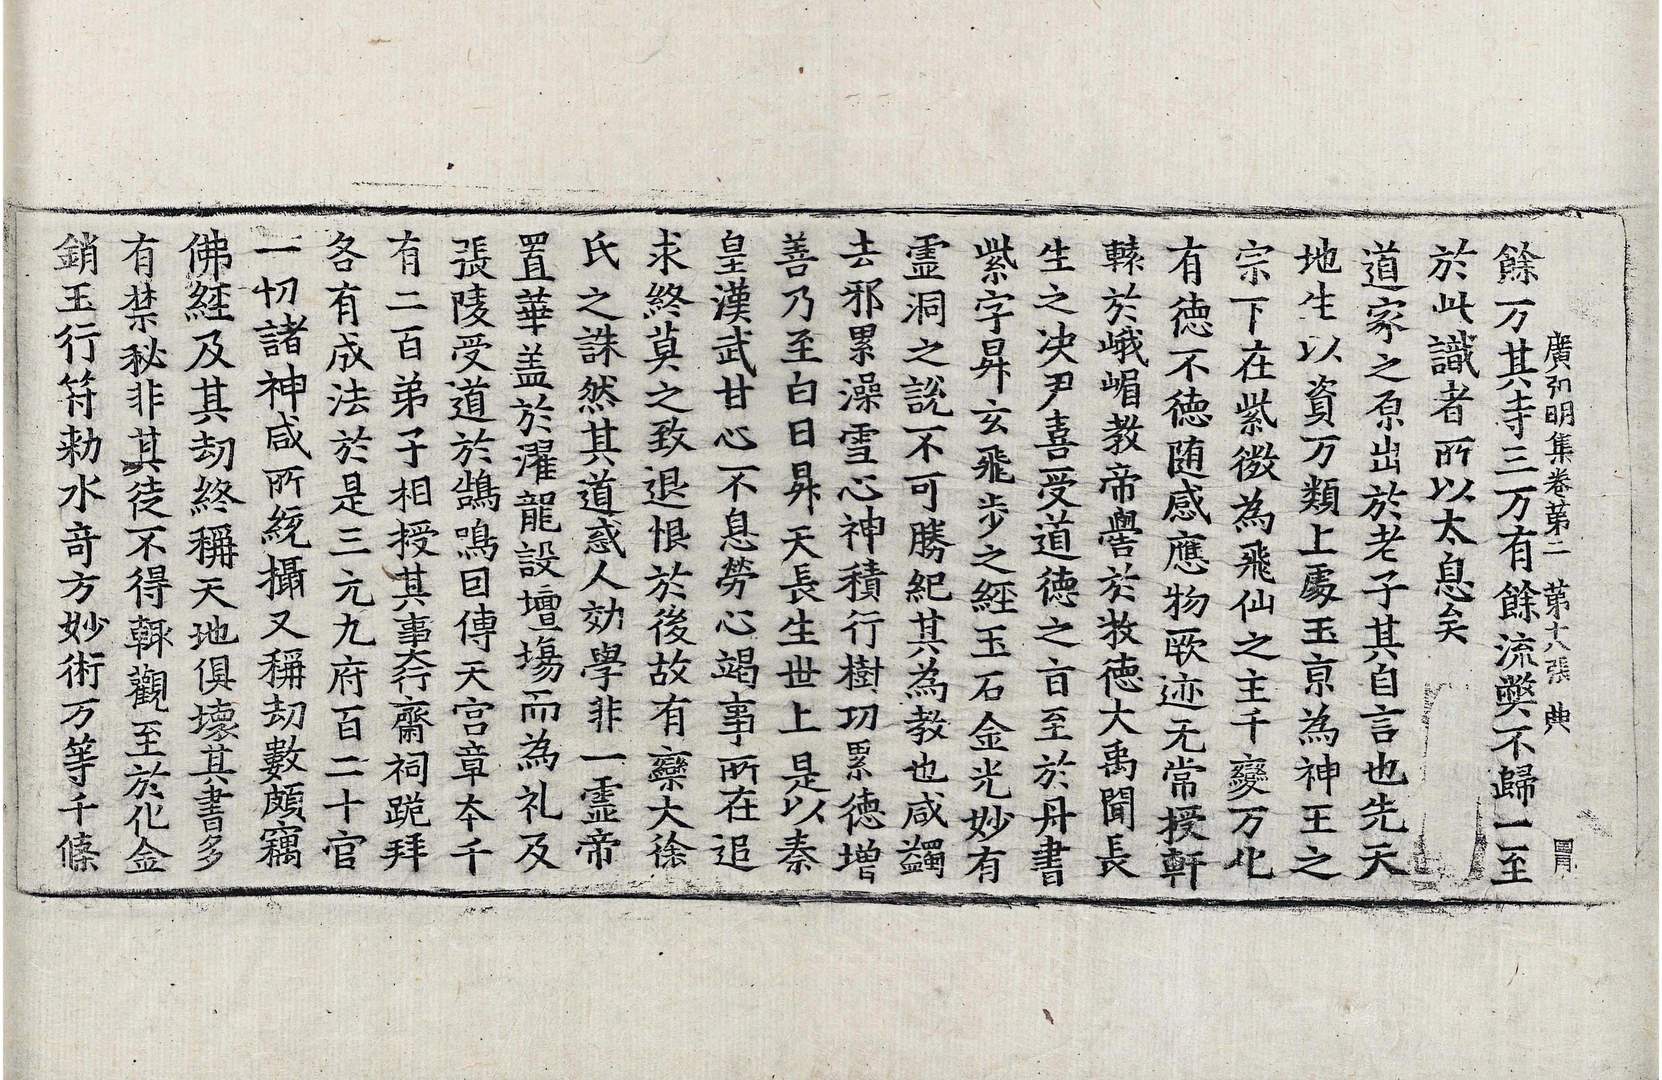 廣弘明集卷第二　第十八張　典　胃
餘万其寺三万有餘流獘不歸一至
於此識者所以太息矣
道家之原出於老子其自言也先天
地生以資万類上處玉京為神王之
宗下在紫微為飛仙之主千變万化
有德不德随感應物厥迹无常授軒
轅於峨嵋教帝嚳於牧德大禹聞長
生之决尹喜受道德之旨至於丹書
紫字昇玄飛步之經玉石金光妙有
霊洞之說不可勝紀其為教也咸蠲
去邪累澡雪心神積行樹功累德增
善乃至白日昇天長生世上是以秦
皇漢武甘心不息勞心竭事所在追
求終莫之致退恨於後故有欒大徐
氏之誅然其道惑人効學非一霊帝
置華盖於濯龍設壇塲而為礼及
張陵受道於鵠鳴囙傳天宫章夲千
有二百弟子相授其事大行齋祠跪拜
各有成法於是三元九府百二十官
一切諸神咸所統攝又稱劫數頗竊
佛經及其劫終稱天地俱壊其書多
有禁秘非其徒不得輙觀至於化金
銷玉行符勑水竒方妙術万等千條